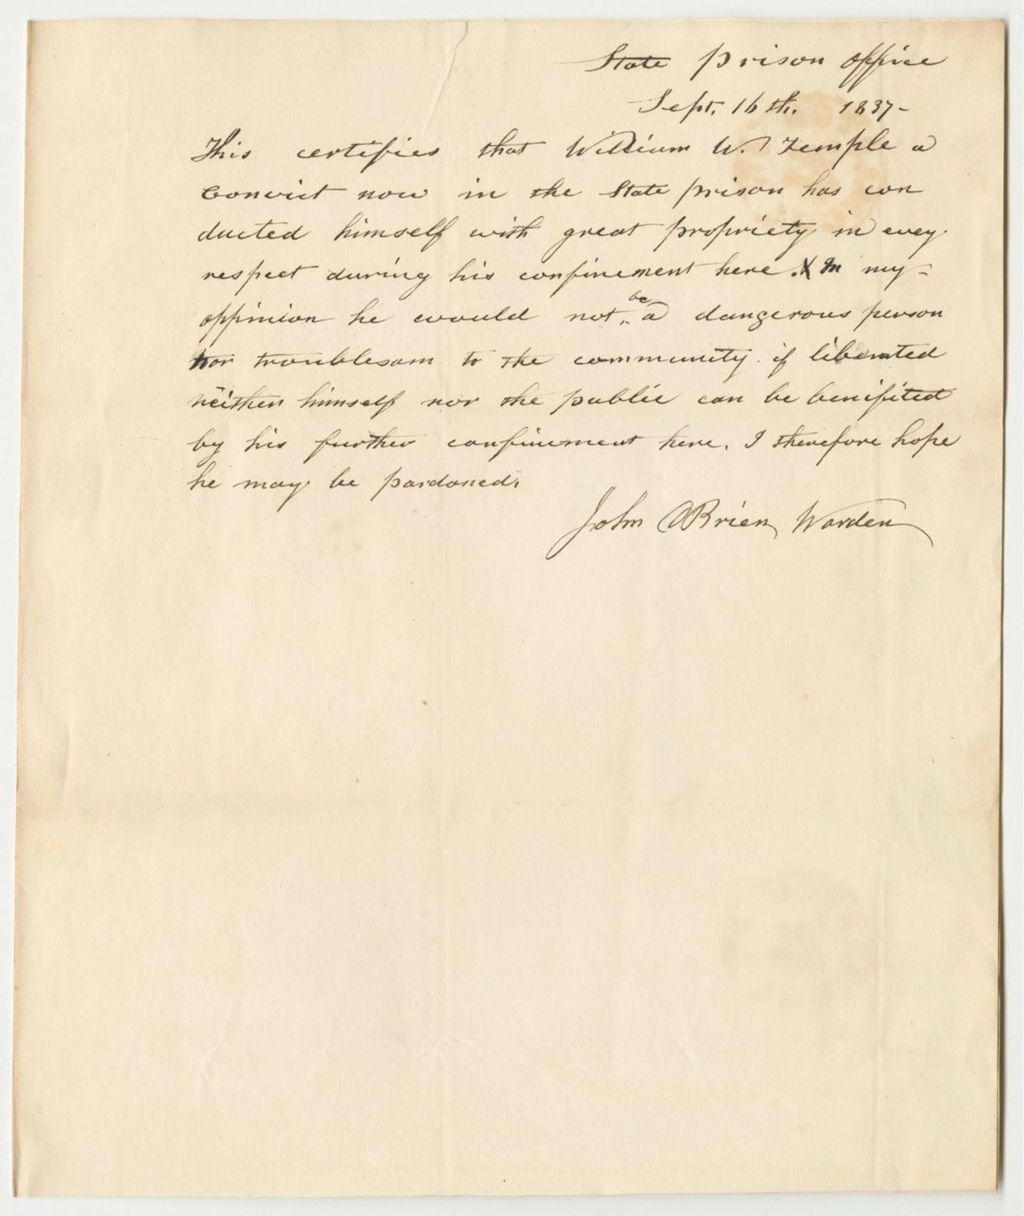 State prison office
Sept. 16th. 1837-
This certifies that William W. Temple a
Convict now in the State prison has con
ducted himself with great propriety in evey
respect during his confinement here. X In my
oppinion he would not be a dangerous person
nor troublesom to the community. if liberated
neither himself nor the public can be benifited
by his further confinement here. I therefore hope
he may be pardoned.
John OBrien Warden